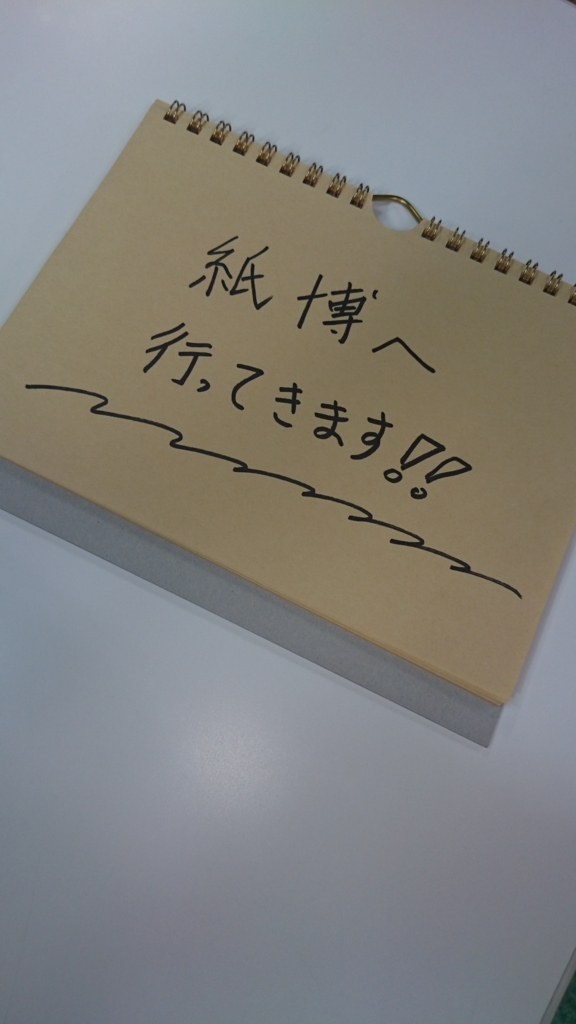 紙博へ
行ってきます!!